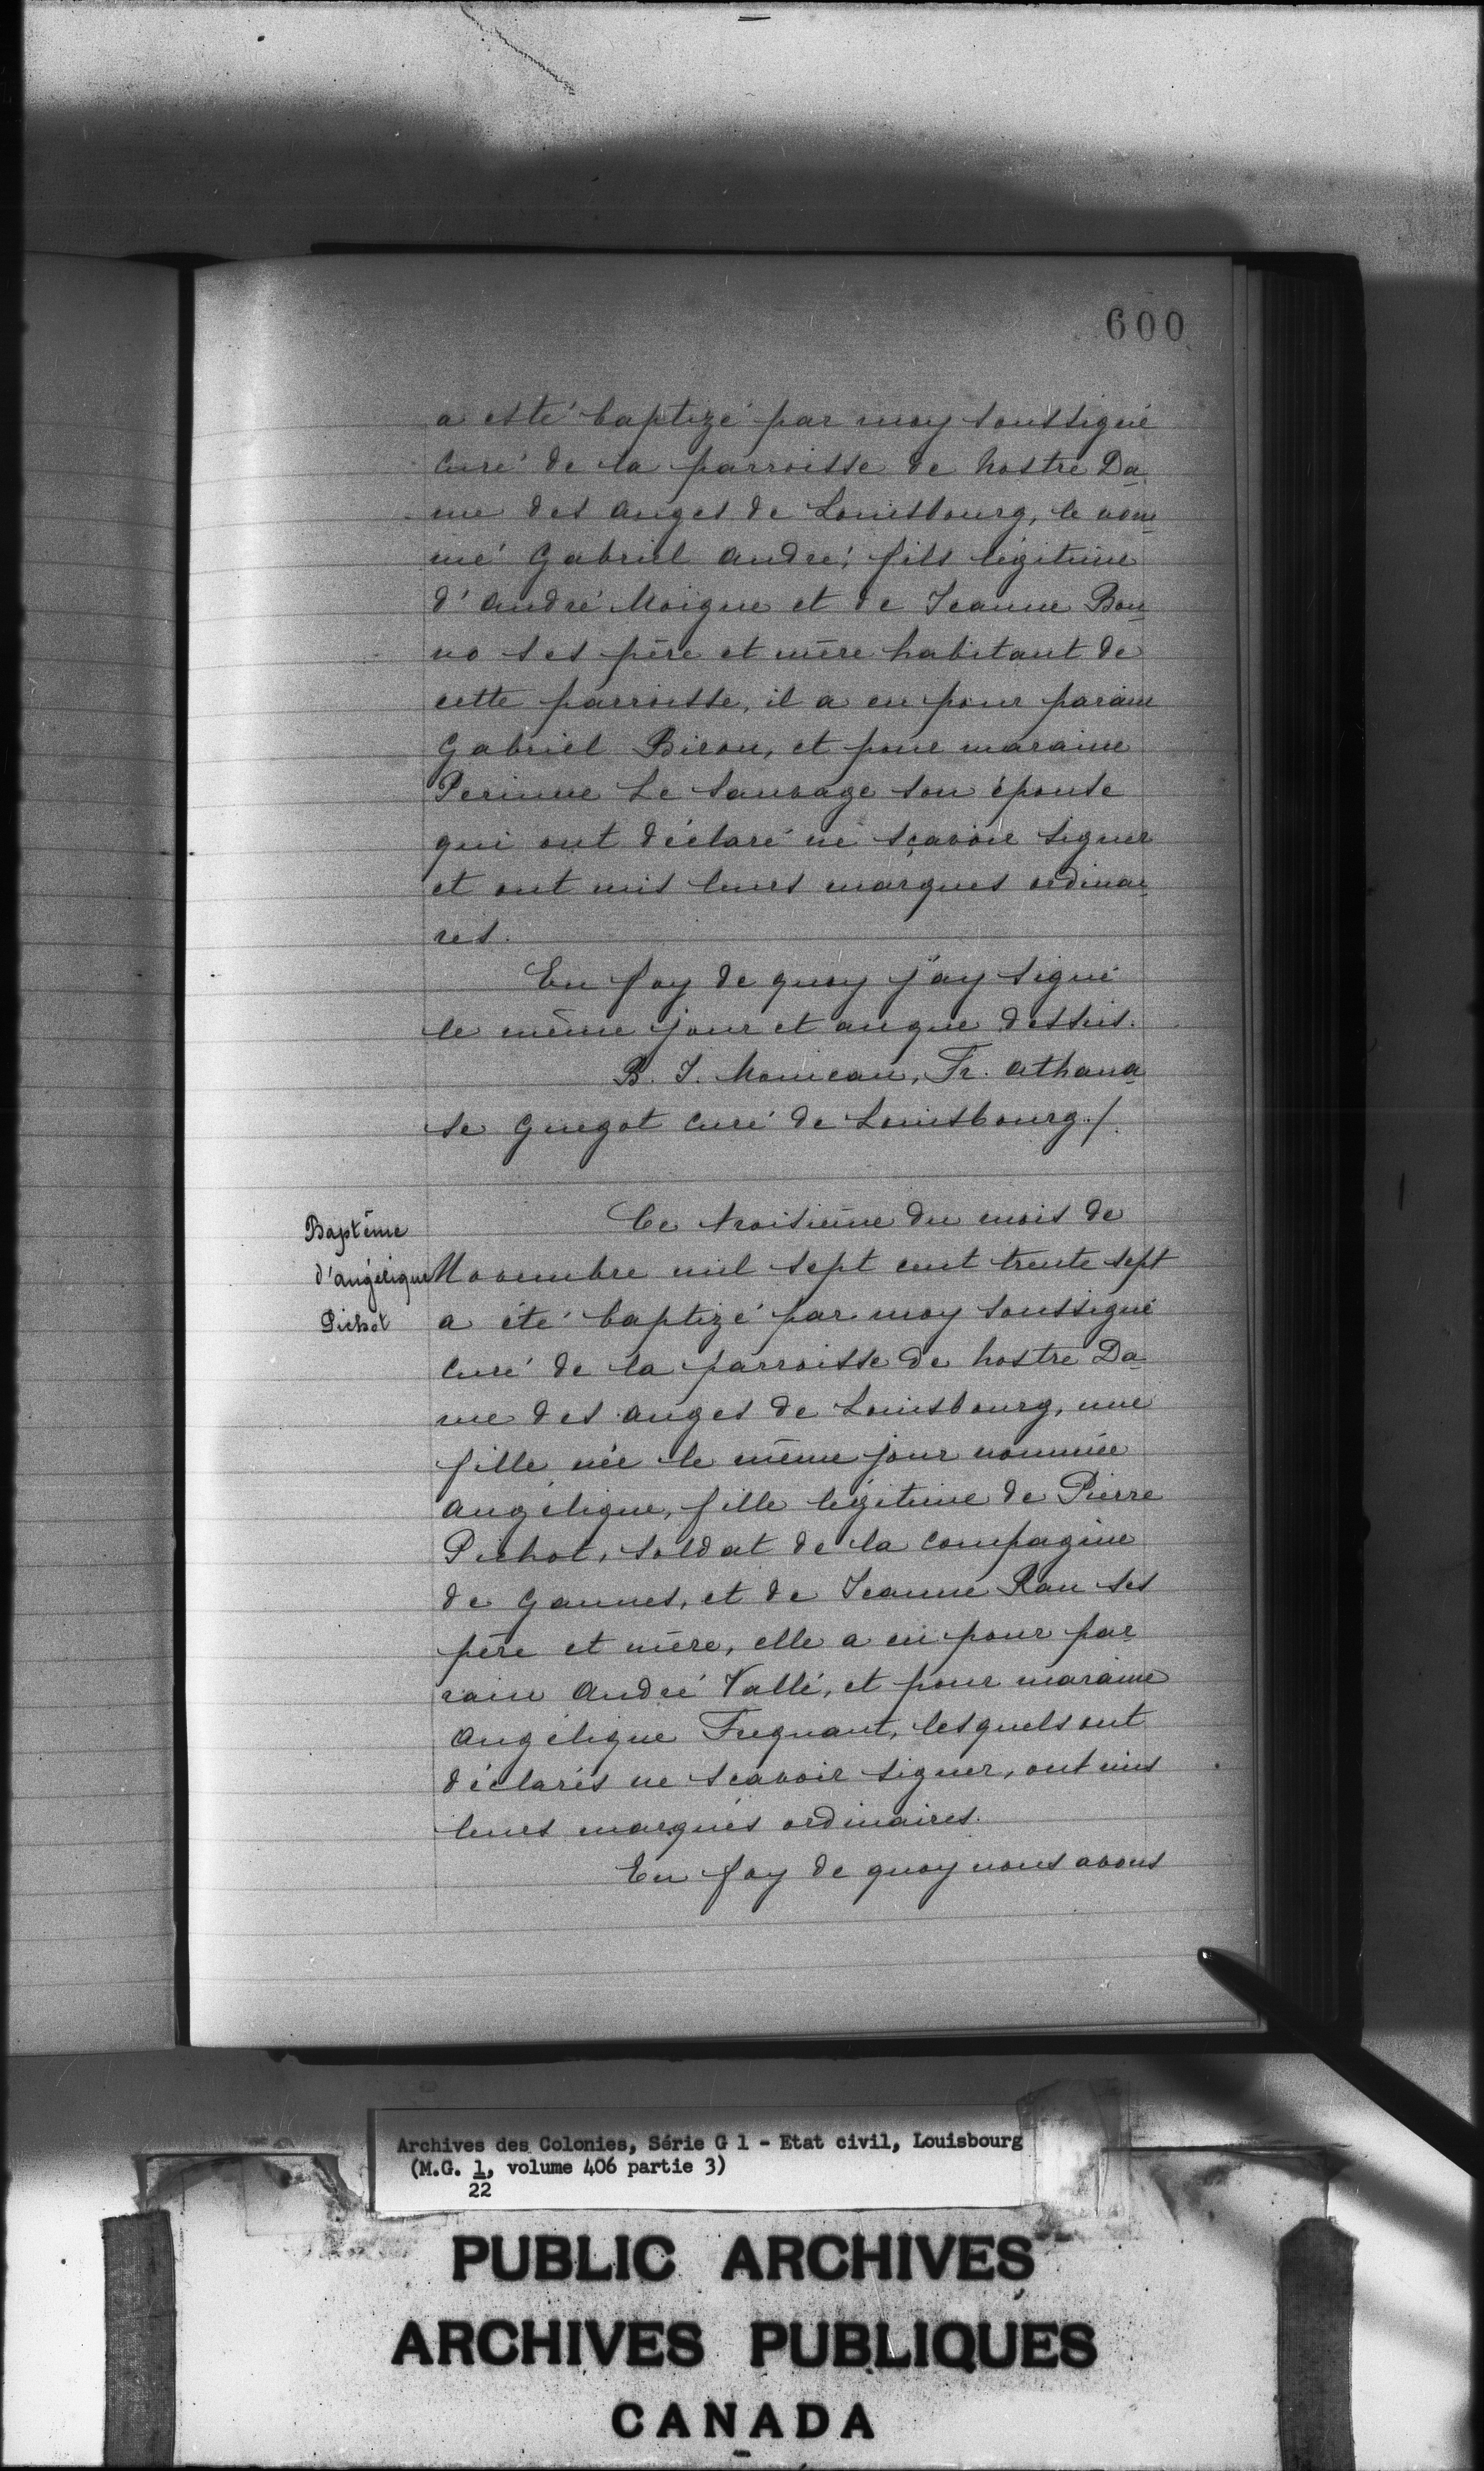 600
a esté baptizé par moy soussigné
Curé de la parroisse de nostre Da
me des anges de Louisbourg, le nom
mé Gabriel andré, fils légitime
d'andré Moigne et de Jeanne Bon
no ses père et mère habitant de
cette parroisse, il a eu pour parain
Gabriel Biron, et pour maraine
Perinne Le Sauvage son épouse
qui ont déclaré né sçavoir signer
et ont mis leurs marques ordinai
res.
En foy de quoy j'ay signé
le même jour et an que dessus.
B. J. Moineau, Fr. athana
se Guegot Curé de Louisbourg./.
Baptême
d'angélique
Pichot
Ce troisième du mois de
Novembre mil sept cent trente sept
a été baptizé par moy soussigné
Curé de la parroisse de nostre Da
me des anges de Louisbourg, une
fille née le même jour nommée
angélique, fille légitime de Pierre
Pichot, soldat de la Compagnie
de Gannes, et de Jeanne Rau ses
père et mère, elle a eu pour par
rain andré Vallé, et pour maraine
angélique Freguant, lesquels ont
déclarés ne scavoir signer, ont mis
leurs marques ordinaires.
En foy de quoy nous avons
Archives des Colonies, Série G 1 - Etat civil, Louisbourg
(M.G. 1, volume 406 partie 3)
22
PUBLIC ARCHIVES
ARCHIVES PUBLIQUES
CANADA